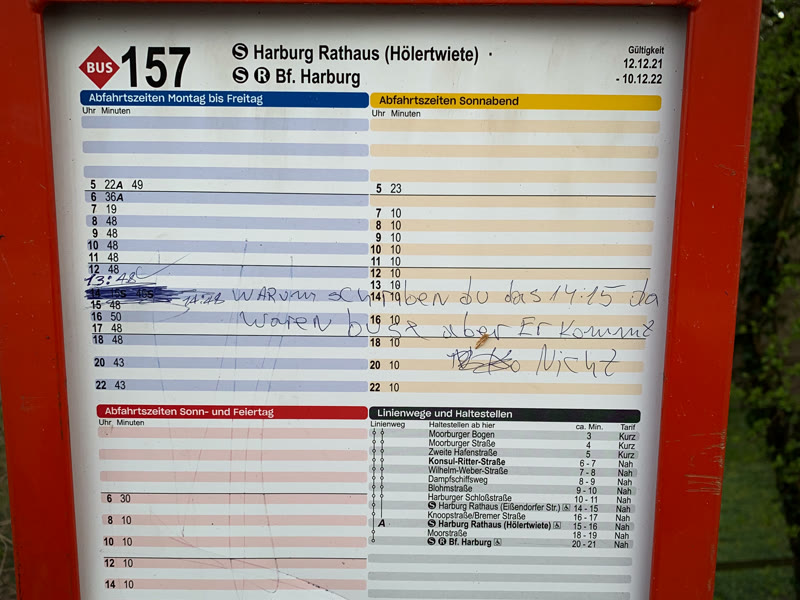 BUS 157 S Harburg Rathaus (Hölertwiete)
S R Bf. Harburg
Gültigkeit
12.12.21
- 10.12.22
Abfahrtszeiten Montag bis Freitag
Uhr Minuten
5 22A 49
6 36A
7 19
8 48
9 48
10 48
11 48
12 48
13:48
14:48
15 48
16 50
17 48
18 48
20 43
22 43
Abfahrtszeiten Sonnabend
Uhr Minuten
5 23
7 10
8 10
9 10
10 10
11 10
12 10
13 16
14 19
16 10
18 10
20 10
22 10
WARUM schreiben du das 14:15 da
waren aber Er kommt
Nicht
Abfahrtszeiten Sonn- und Feiertag
Uhr Minuten
6 30
8 10
10 10
12 10
14 10
Linienwege und Haltestellen
Linienweg Haltestellen ab hier ca. Min. Tarif
Moorburger Bogen 3 Kurz
Moorburger Straße 4 Kurz
Zweite Hafenstraße 5 Kurz
Konsul-Ritter-Straße 6 - 7 Nah
Wilhelm-Weber-Straße 7 - 8 Nah
Dampfschiffsweg 8 - 9 Nah
Blohmstraße 9 - 10 Nah
Harburger Schloßstraße 10 - 11 Nah
S Harburg Rathaus (Eißendorfer Str.) 14 - 15 Nah
Knoopstraße/Bremer Straße 16 - 17 Nah
A S Harburg Rathaus (Hölertwiete) 15 - 16 Nah
Moorstraße 18 - 19 Nah
S R Bf. Harburg 20 - 21 Nah